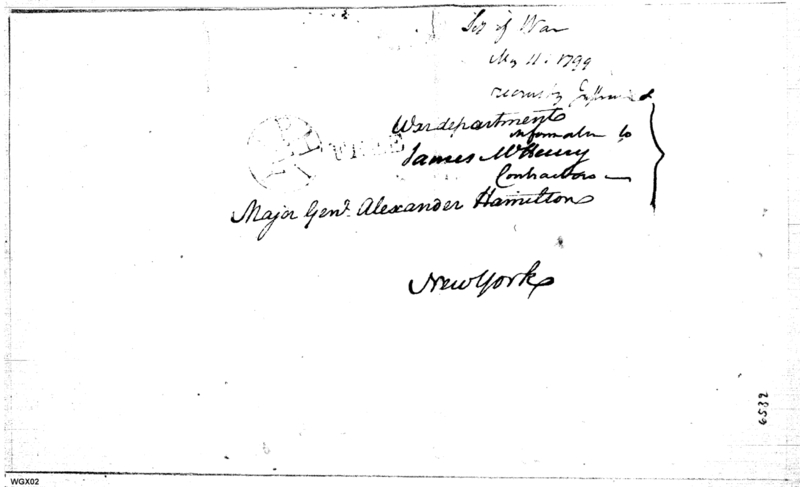 Sec of War
May 11. 1799
recruiting
War department
information to
James McHenry
Contractors —
Major Genl. Alexander Hamilton
New York
6532
WGX02